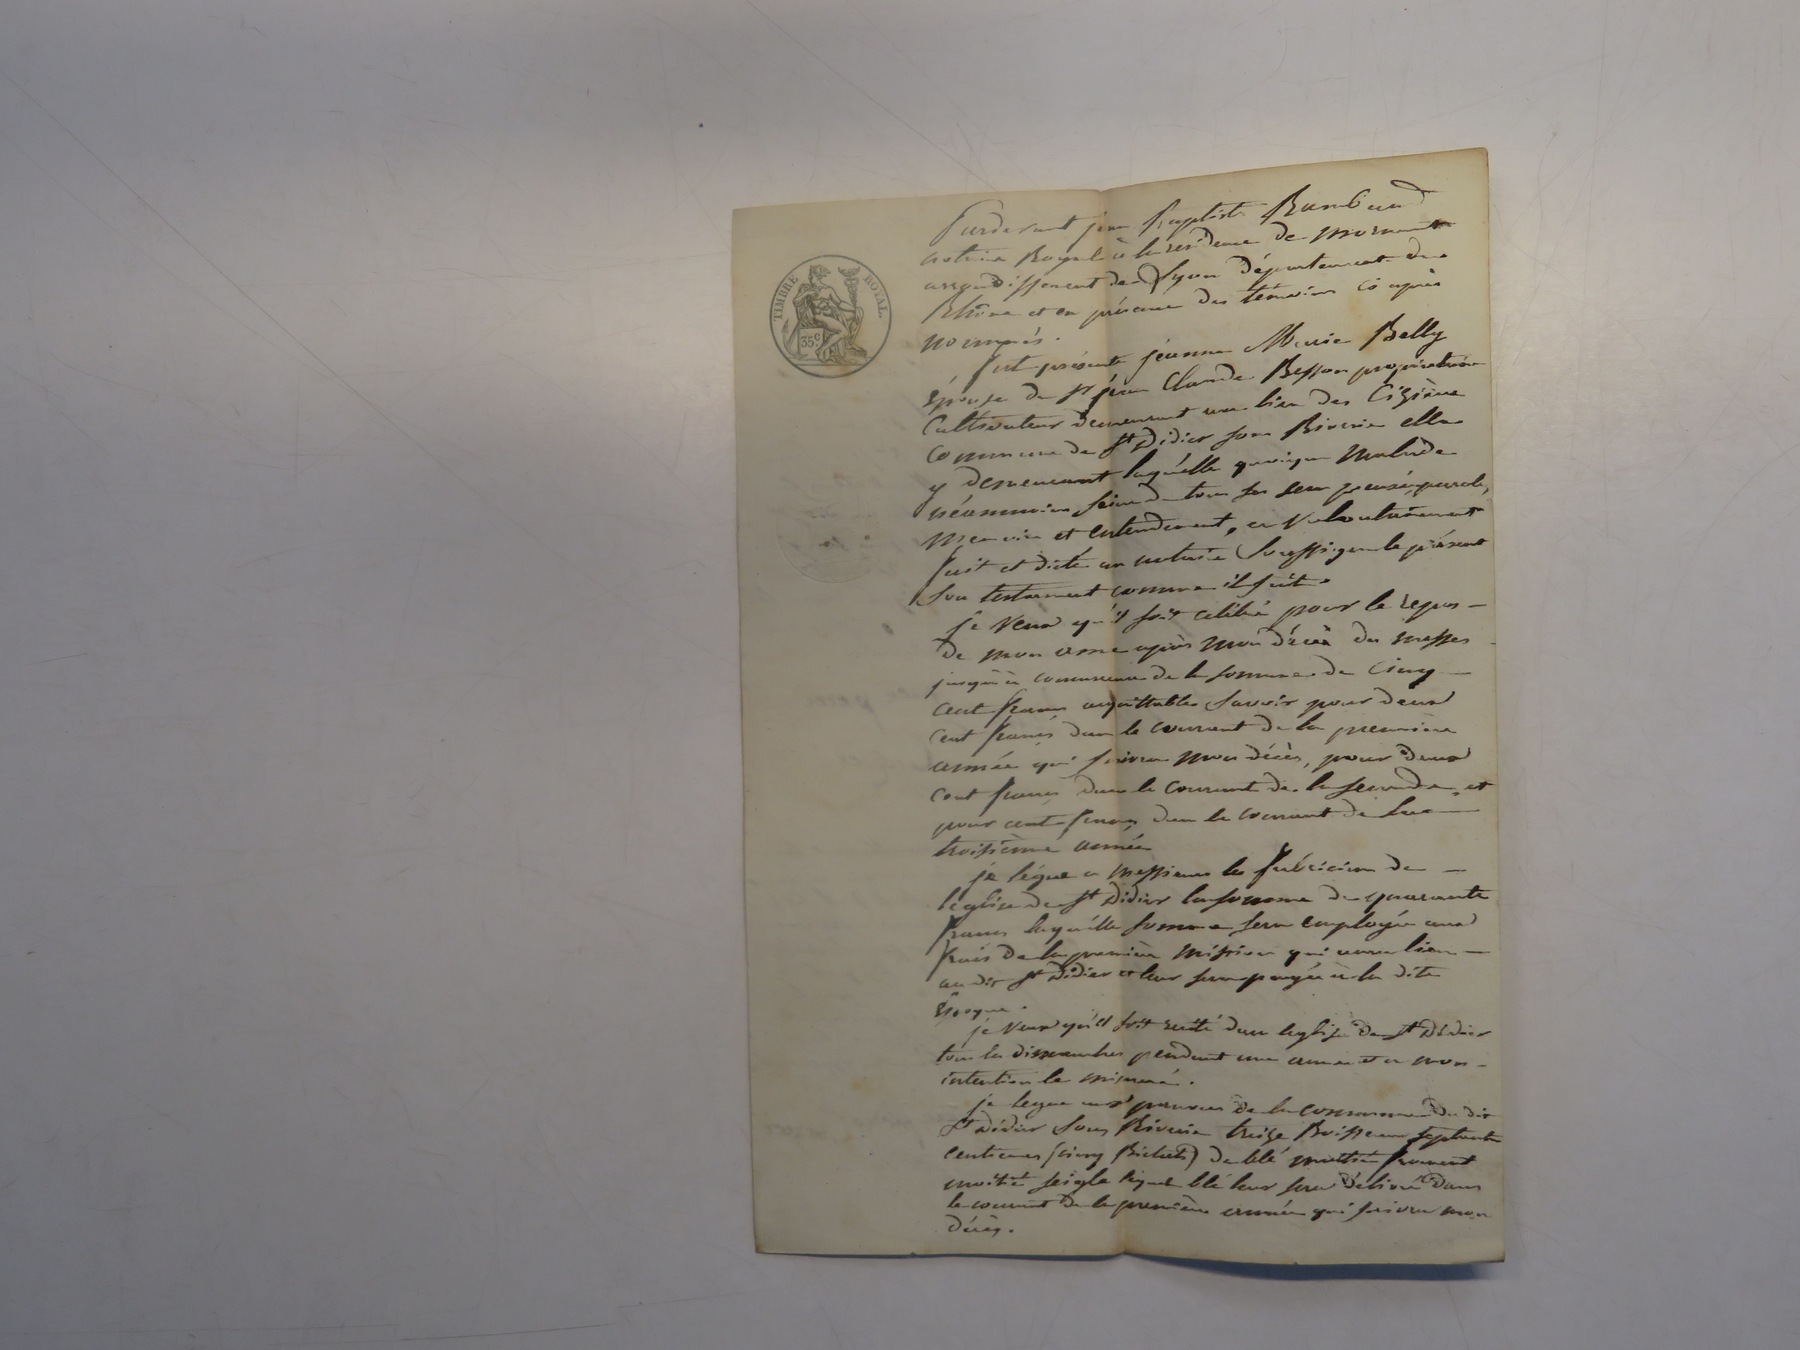 TIMBRE ROYAL.
35c
Pardevant jean Baptiste Rambaud
notaire Royal à la residence de mornant
arrondissement de Lyon département du
Rhône et en présence des témoins ci après
nommés.
fut présente jeanne Marie Belly
épouse de sr jean Claude Besson propriétaire
Cultivateur demeurant au lieu des
commune de st Didier sous Riverie elle
y demeurant laquélle quoique malade
néanmoins saine de tous ses sens pensé, parole,
mémoire et entendement, a volontairement
fait et dicté au notaire soussigné le présent
son testament comme il suit.
je veux qu'il soit célébré pour le repos
de mon ame après mon décès des messes
jusqu'à concurrence de la somme de cinq
cent francs acquittables savoir pour deux
cent francs dans le courant de la première
année qui suivra mon décès, pour deux
cent francs dans le courant de la seconde, et
pour cent francs dans le courant de la
troisième année
je légue a messieurs les fabriciens de
léglise de st Didier la somme de quarante
francs laquélle somme sera employée aux
frais de la première mission qui aura lieu
au dit st Didier et leur sera payée à la dite
époque.
je veux qu'il soit récité dans léglise de st Didier
tous les dimanches pendant une année et a mon
intention le miséréré.
je legue aux pauvres de la commune du dit
st Didier sous Riverie treize Boisseaux septante
centiemes (cinq Bichets) de blé moitié froment
moitié seigle lequel blé leur sera délivré dans
le courant de la première année qui suivra mon
décès.